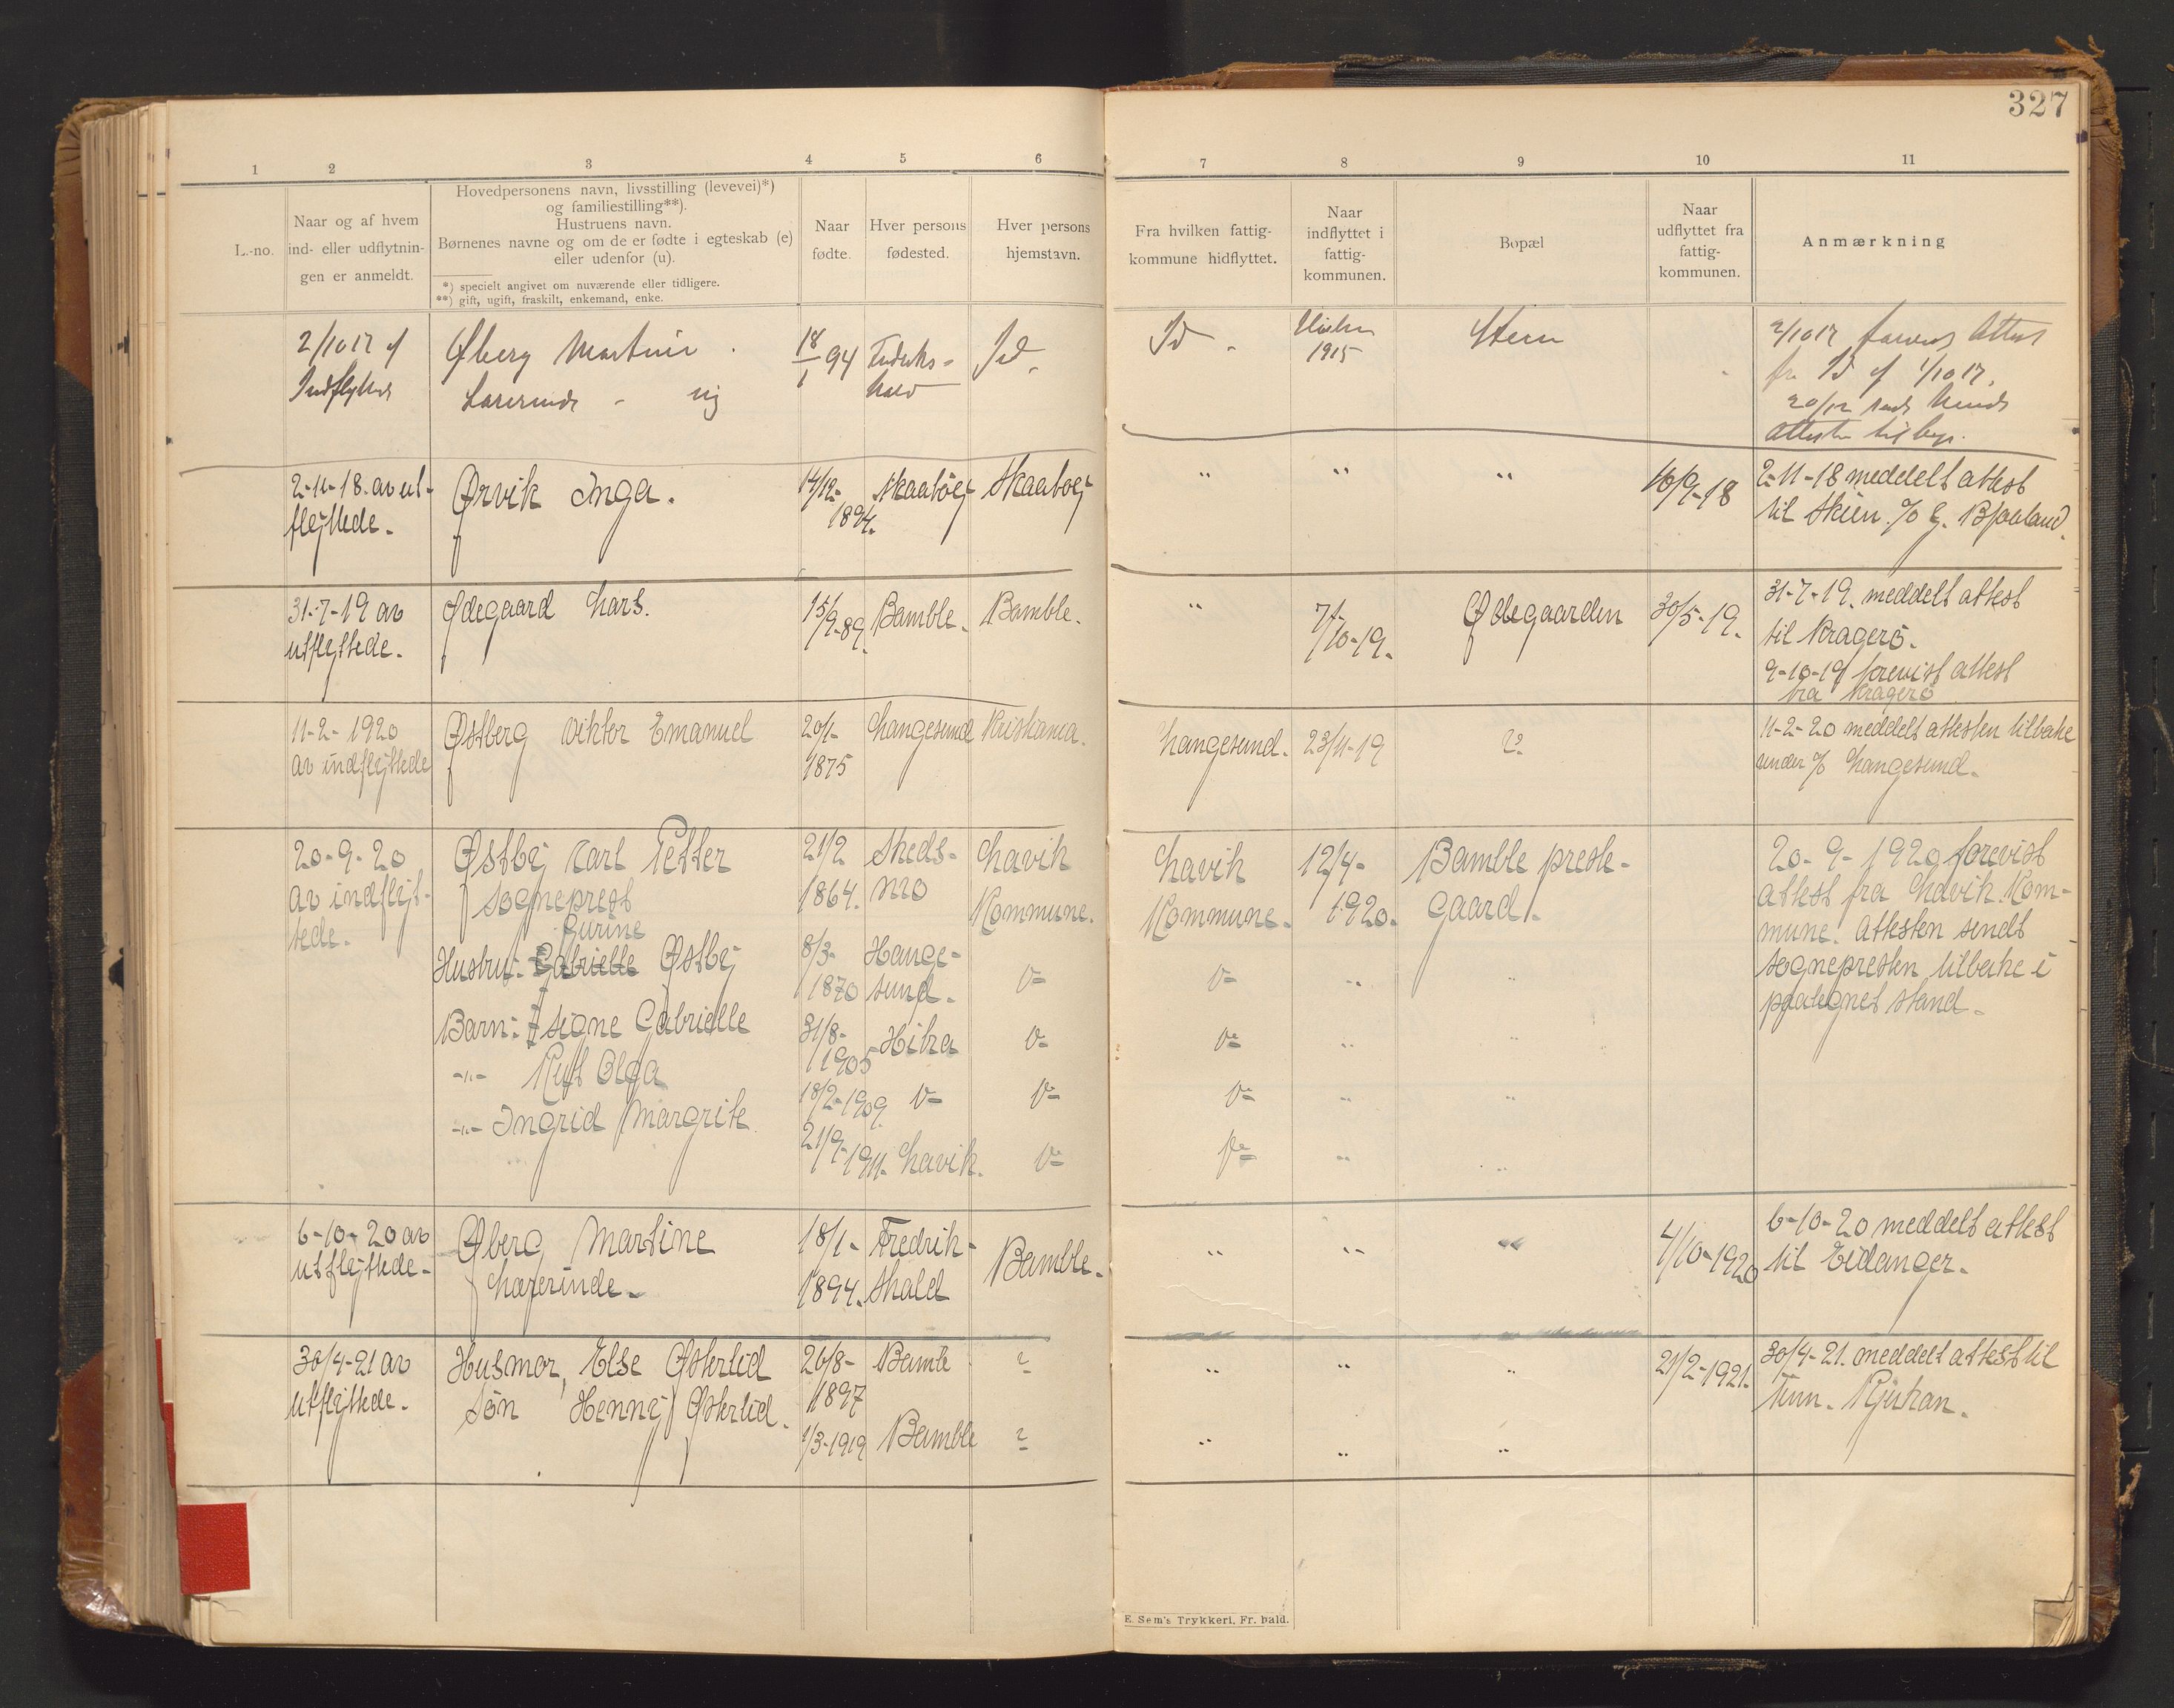 327
1 2 3 4 5 6 7 8 9 10 11
L.-no.
Naar og af hvem
ind- eller udflytnin-
gen er anmeldt.
Hovedpersonens navn, livsstilling (levevei)*)
og familiestilling**).
Hustruens navn.
Børnenes navne og om de er fødte i egteskab (e)
eller udenfor (u).
*) specielt angivet om nuværende eller tidligere.
**) gift, ugift, fraskilt, enkemand, enke.
Naar
fødte.
Hver persons
fødested.
Hver persons
hjemstavn.
Fra hvilken fattig-
kommune hidflyttet.
Naar
indflyttet i
fattig-
kommunen.
Bopæl
Naar
udflyttet fra
fattig-
kommunen.
Anmærkning
2/10 17 af
Indflyttede
Øberg Martine
Lærerinde - ug
18/1 94
Fredriks-
hald
Id
Id
1915
Stem
2/10 17 Attest
fra Id af 1/10 17.
20/12
Attesten tilbage.
2-11-18 av ut-
flyttede.
Ørvik Inga.
14/12-
1894.
Skaatøy
Skaatøy
" " "
16/9-18
2-11-18 meddelt attest
til Skien. % G. Bjaaland.
31-7-19 av
utflyttede.
Ødegaard Lars.
15/9-89.
Bamble.
Bamble.
"
7/10-19.
Ødegaarden
30/5-19.
31-7-19. meddelt attest
til Kragerö.
9-10-19 forevist attest
fra Kragerö
11-2-1920
av indflyttede
Østberg Viktor Emanuel
20/1-
1875
Langesund
Kristiania.
Langesund.
23/11-19
?
11-2-20 meddelt attesten tilbake
under % Langesund.
20-9-20
av indflyt-
tede.
Østby Carl Petter
sogneprest
21/2
1864.
Skeds-
mo
Lavik
Kommune.
Lavik
Kommune.
12/4-
1920.
Bamble preste-
gaard.
20-9-1920 forevist
attest fra Lavik Kom-
mune. Attesten sendt
sognepresten tilbake i
paategnet stand.
Gurine
Hustru: Gabrielle Østby
8/3-
1870
Hauge-
sund.
Barn: Signe Gabrielle
31/8-
1905
Hitra
-"- Rut Olga
18/2-1909
-"- Ingrid Margrite
21/9-1911.
Lavik.
6-10-20 av
utflyttede.
Øberg Martine
Lærerinde.
18/1-
1894.
Fredrik-
shald
Bamble.
" " "
4/10-1920
6-10-20 meddelt attest
til Eidanger.
30/4-21 av
utflyttede.
Husmor, Else Østerlid
26/8-
1897
Bamle
?
" " "
21/2-1921.
30/4-21. meddelt attest til
Tinn. Rjukan.
Søn Henny Østerlid.
1/3-1919
Bamble
?
" " "
E. Sem's Trykkeri, Fr.hald.